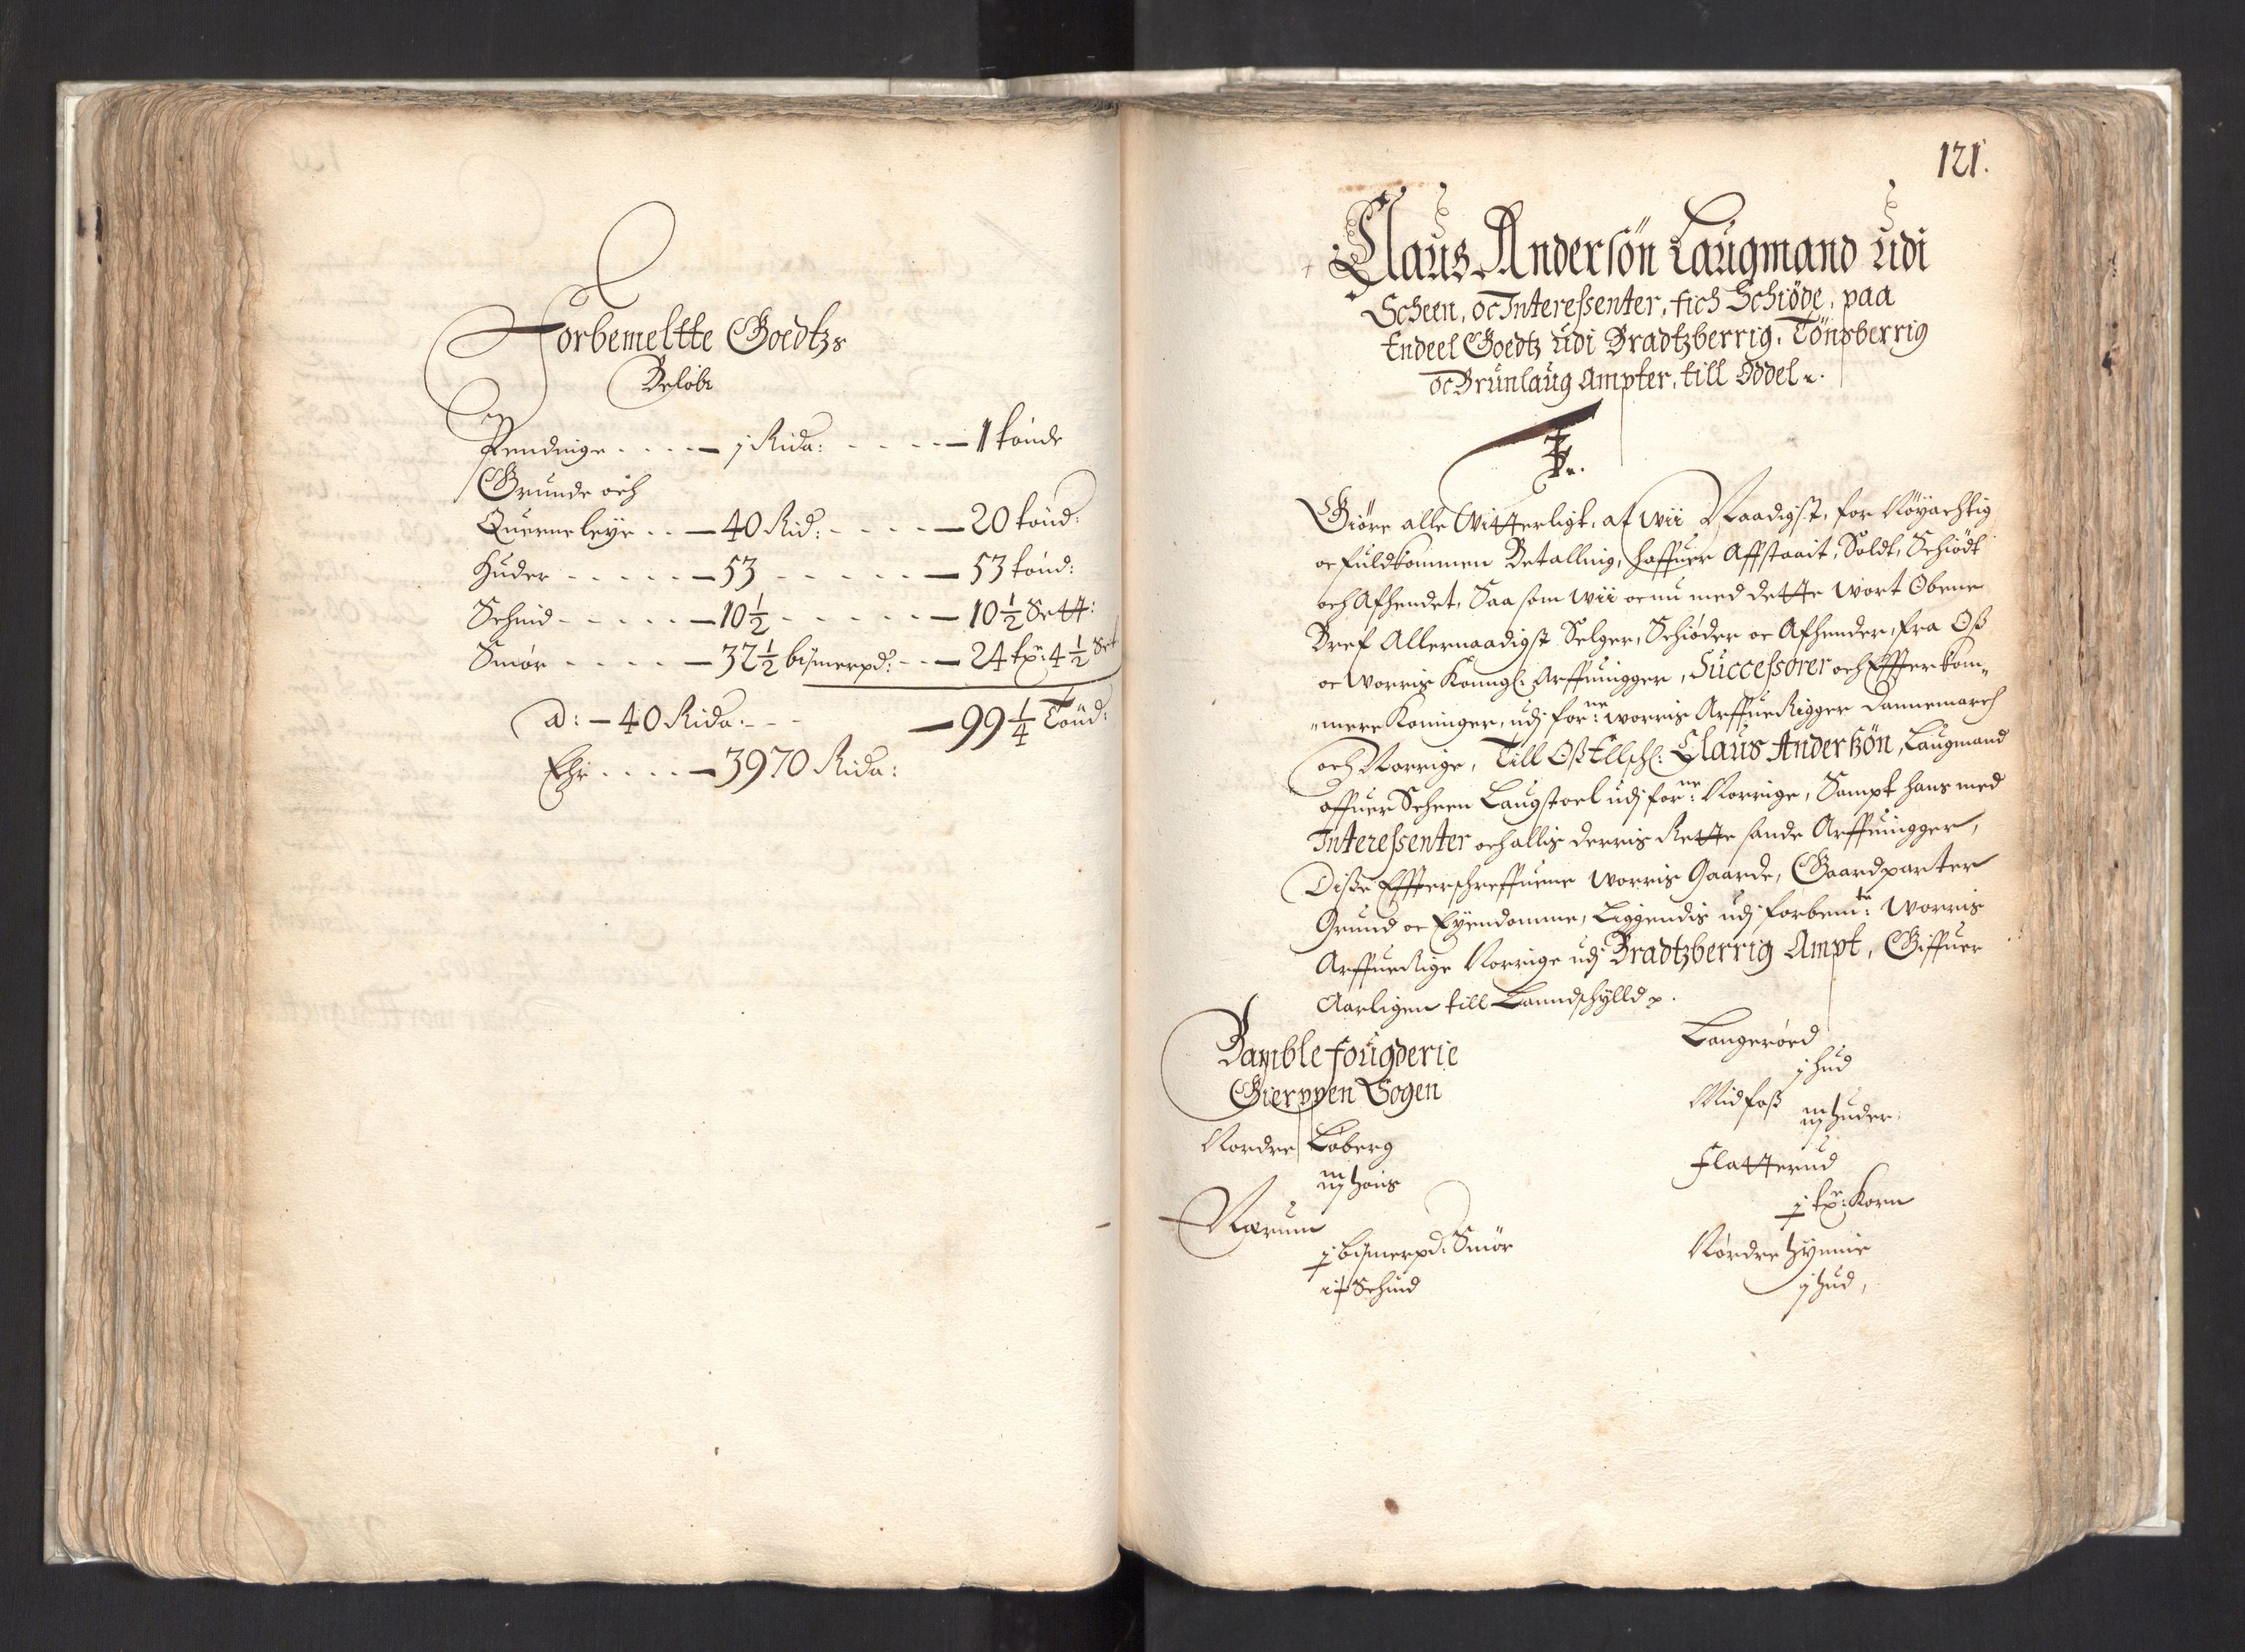 Forbemeltte Goedtzs
Beløb
Pendinge . . . . — j Rida: - - - - — 1 tönde
Grunde och
Querneleye . . — 40 Rid: - - - - — 20 tönd:
Huder - - - - - — 53 - - - - - — 53 tönd:
Schind - - - - - — 10 1/2 - - - - - — 10 1/2 Sett:
Smör - - - - — 32 1/2 bismerpd: - - — 24 tr: 4 1/2 Set
a: — 40 Rida: - - - — 99 1/4 Tönd:
Ehr . . . . — 3970 Rida:
121.
Claus Andersön Laugmand udi
Scheen, oc Interessenter, fich Schiöde, paa
Endeel Goedtz udi Bradtzberrig, Tönsberrig
oc Brunlaug Ampter, till Oddel
Giöre alle Witterligt, at wii Naadigst, for Nöyachtig
oc fuldkommen Betalling, haffuer Affstaait, Soldt, Schiödt
och Afhendet, Saa som wii oc nu med dette wort Obene
Bref Allernaadigst Selger, Schiöder oc Afhender, fra Oß
oc worris Konngl: Arffuingger, Successorer och Effterkom„
„mere Koninger, udj forne: worris Arffue Rigger Dannemarch
och Norrige, Till Oß Ellschl: Claus Anderßön, Laugmand
offuer Scheen Laugstoel udj forne: Norrige, Sampt hans med
Interessenter och allis derris Rette sande Arffuingger,
Disse Effterschreffuene worris Gaarde, Gaardparter
Grund oc Eyendomme, Liggendis udj forbemte: worris
Arffue Rige Norrige udj Bradtzberrig Ampt, Giffuer
Aarligen till Lanndschylld
Bamble fougderie
Gierppen Sogen
Nordre Løberg
iij hous
Nærum
j bismerpd: Smör
Schind
Langeröed
j hud
Midfoß
iij huder
Flatterud
j tr: Korn
Nordre Hynnie
j hud,